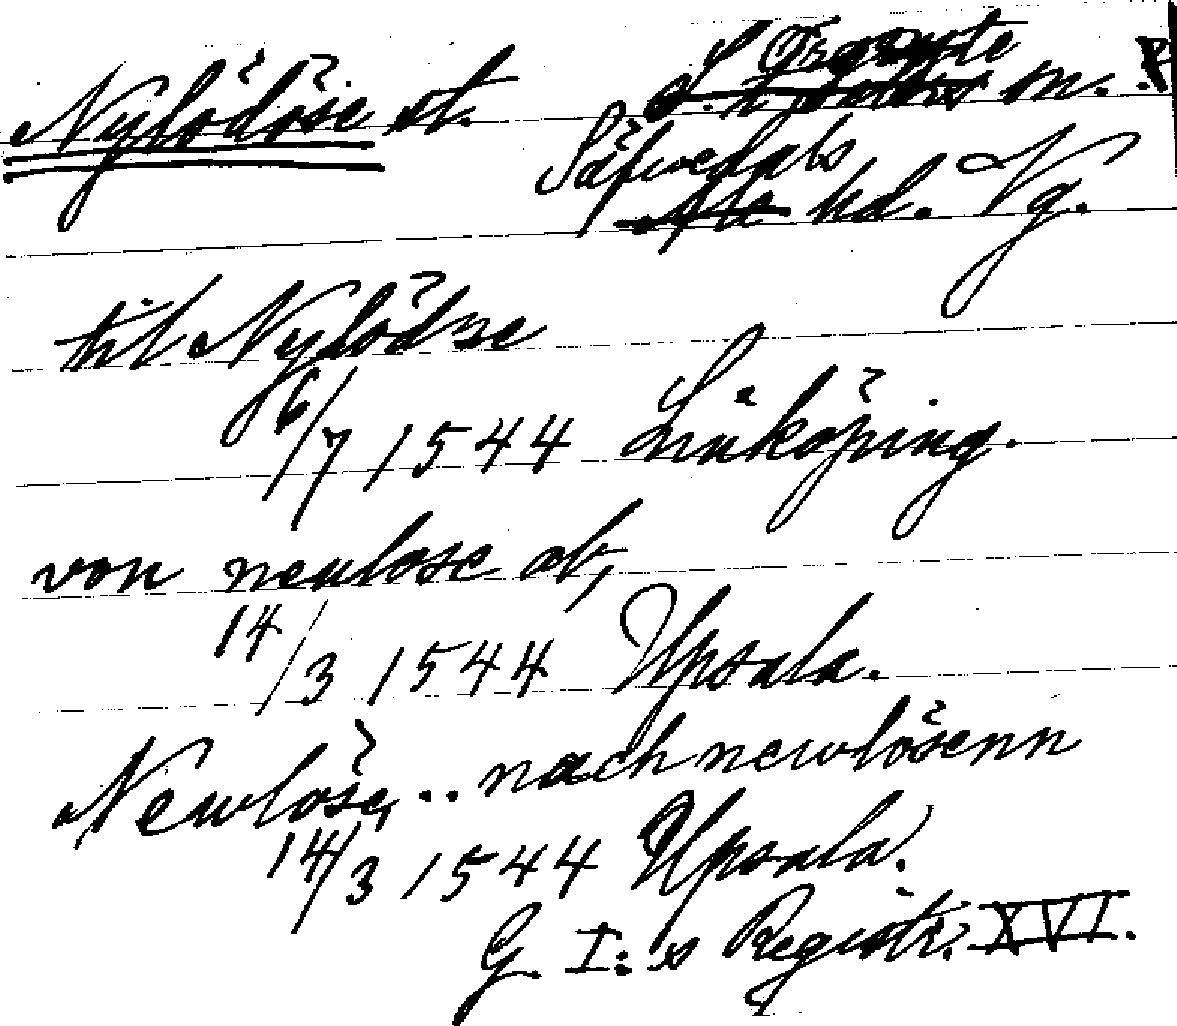 Nylödöse st.
Säfvedals hd. Vg.
til Nylödse
6/7 1544 Linköping.
von newlose ab,
14/3 1544 Upsala.
Newlöse, .. nach newlösenn
14/3 1544 Upsala.
G. I:s Registr. XVI.